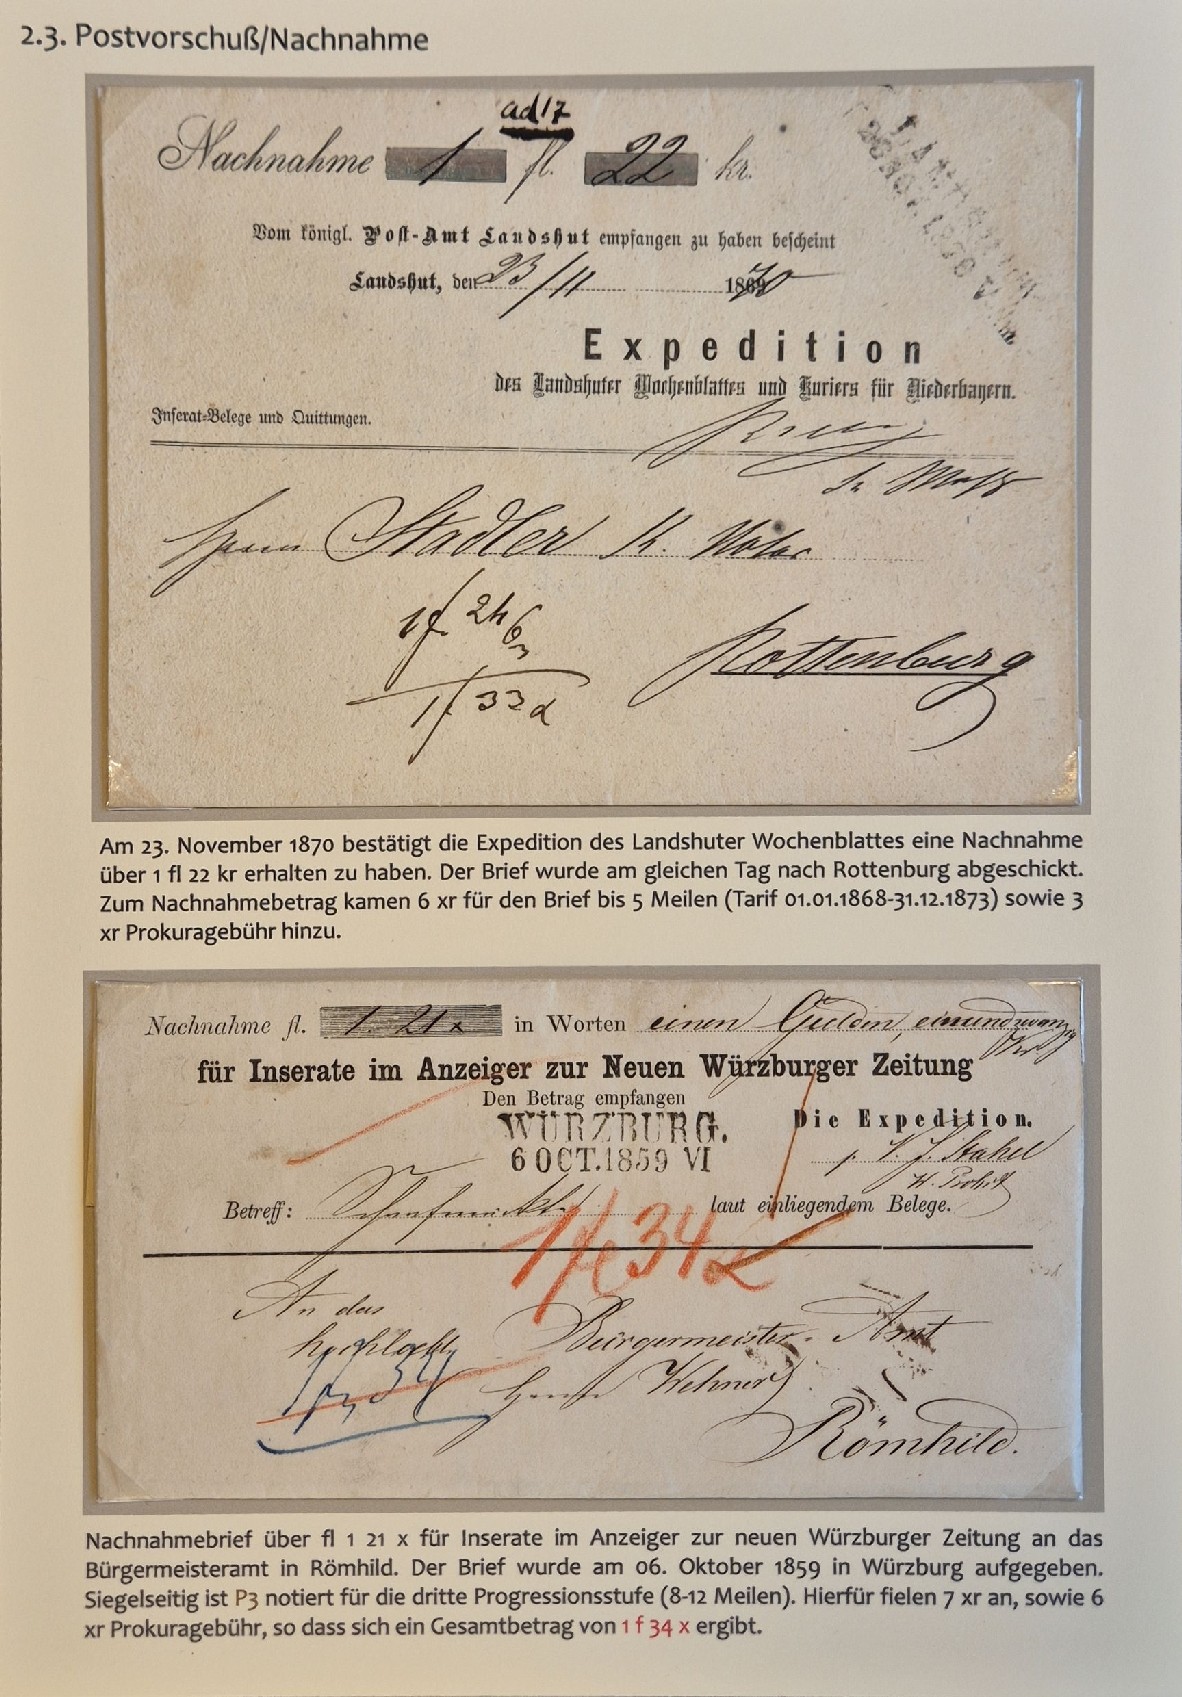 2.3. Postvorschuß/Nachnahme
ad 17
Nachnahme 1 fl. 22 kr.
Vom königl. Post-Amt Landshut empfangen zu haben bescheint
Landshut, den 23/11 1870
Expedition
des Landshuter Wochenblattes und Kuriers für Niederbayern.
Inserat-Belege und Quittungen.
Herrn Stadler K. Notar
1f 24
6
1f 33 x
Rottenburg
Am 23. November 1870 bestätigt die Expedition des Landshuter Wochenblattes eine Nachnahme
über 1 fl 22 kr erhalten zu haben. Der Brief wurde am gleichen Tag nach Rottenburg abgeschickt.
Zum Nachnahmebetrag kamen 6 xr für den Brief bis 5 Meilen (Tarif 01.01.1868-31.12.1873) sowie 3
xr Prokuragebühr hinzu.
Nachnahme fl. 1. 21 x in Worten einen Gulden, einundzwanzig
für Inserate im Anzeiger zur Neuen Würzburger Zeitung
Den Betrag empfangen
WÜRZBURG.
6 OCT. 1859 VI
Die Expedition.
Stahel
Betreff: laut einliegendem Belege.
1 f 34 x
An das
Bürgermeister-Amt
Herrn Wehner
Römhild.
Nachnahmebrief über fl 1 21 x für Inserate im Anzeiger zur neuen Würzburger Zeitung an das
Bürgermeisteramt in Römhild. Der Brief wurde am 06. Oktober 1859 in Würzburg aufgegeben.
Siegelseitig ist P3 notiert für die dritte Progressionsstufe (8-12 Meilen). Hierfür fielen 7 xr an, sowie 6
xr Prokuragebühr, so dass sich ein Gesamtbetrag von 1 f 34 x ergibt.